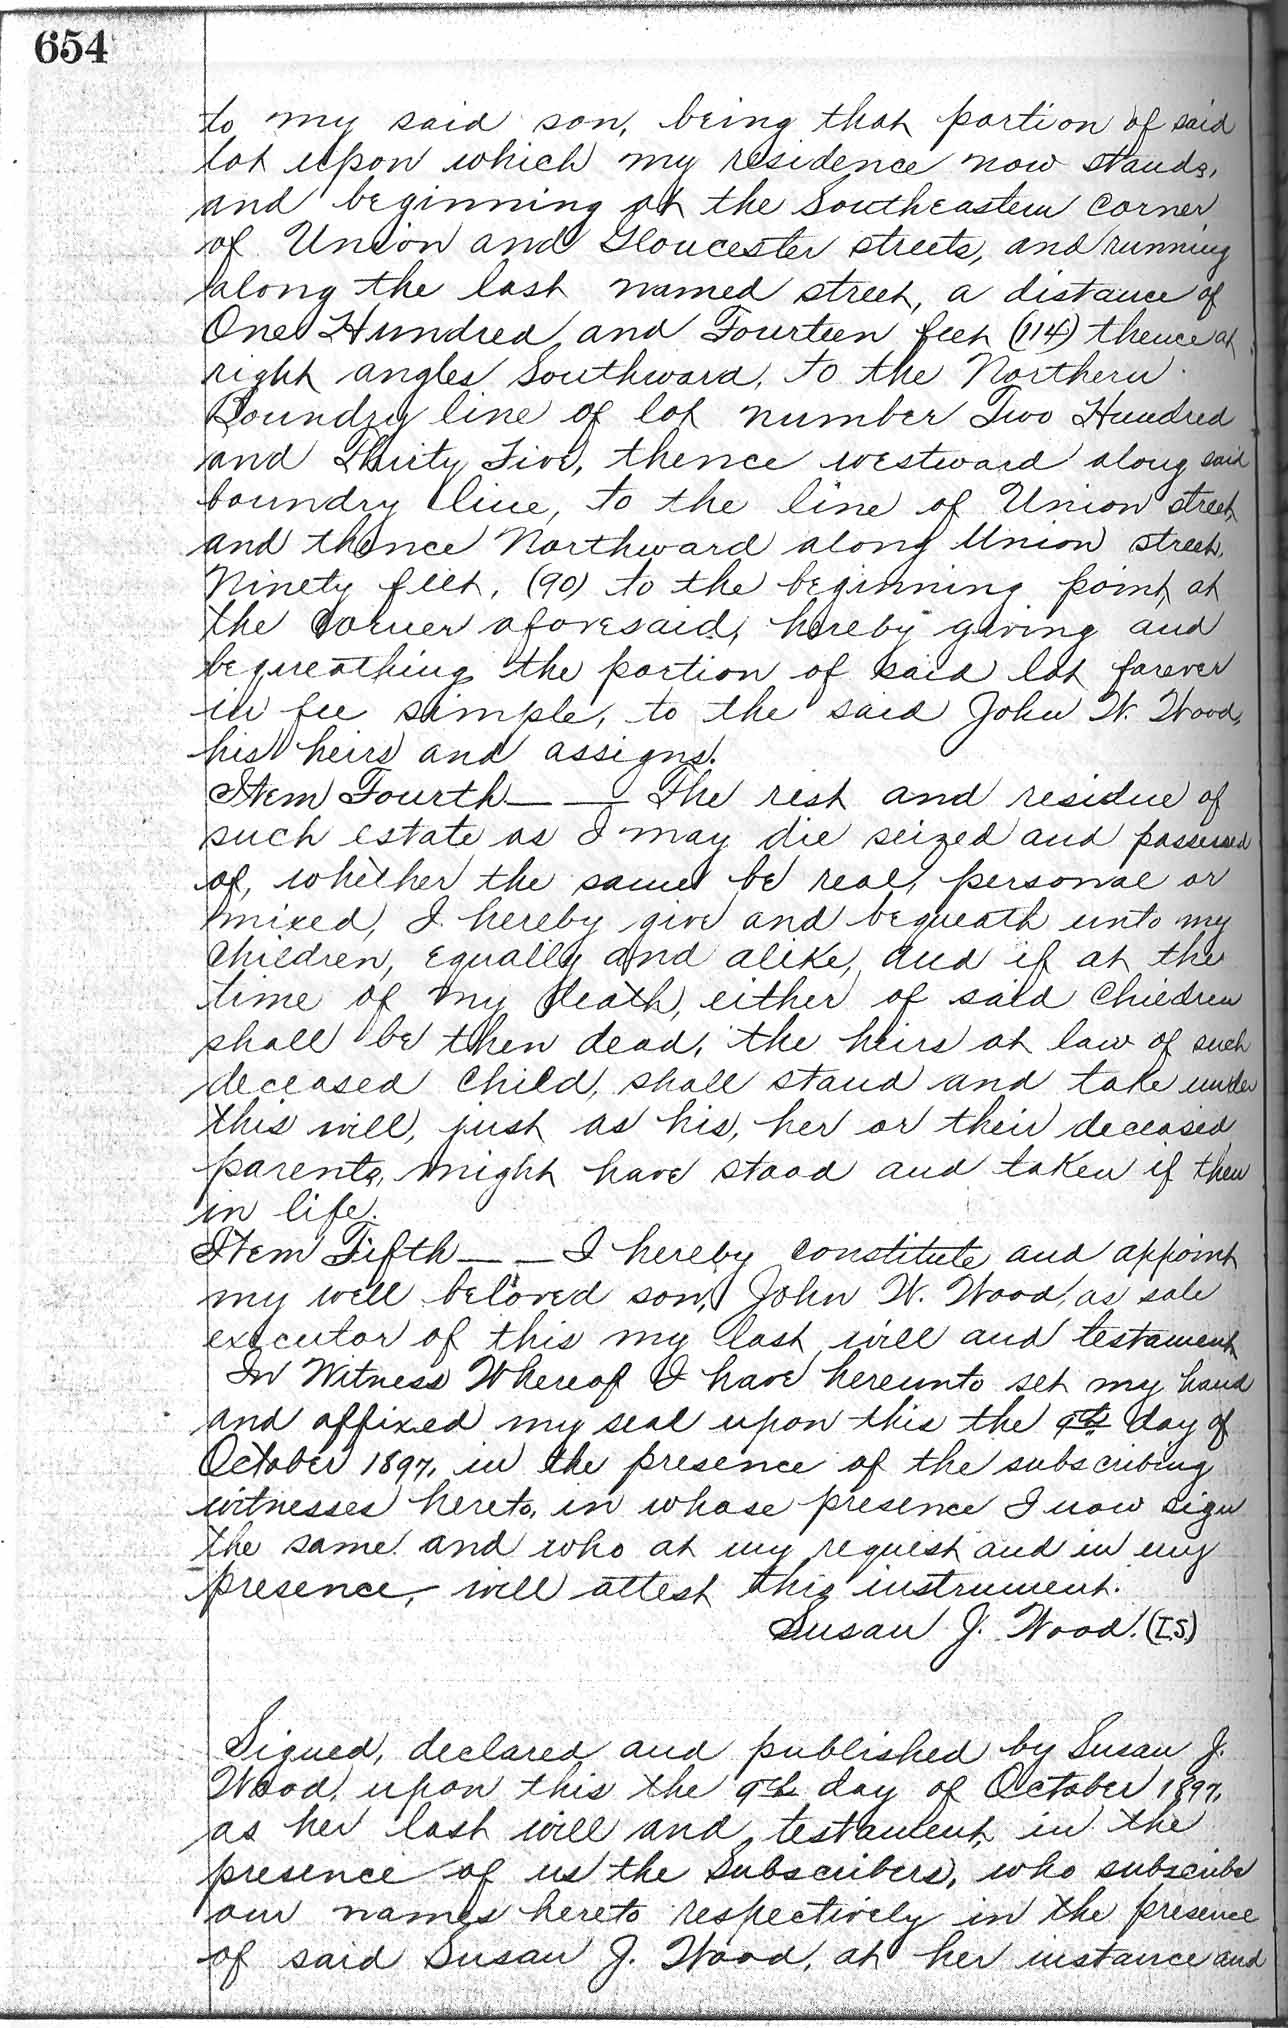 654
to my said son, being that portion of said
lot upon which my residence now stands,
and beginning at the Southeastern corner
of Union and Gloucester streets, and running
along the last named street, a distance of
One Hundred and Fourteen feet (114) thence at
right angles Southward, to the Northern
Boundry line of lot number Two Hundred
and Thirty Five, thence westward along said
boundry line, to the line of Union street
and thence Northward along Union street,
Ninety feet, (90) to the beginning point, at
the corner aforesaid, hereby giving and
bequeathing the portion of said lot forever
in fee simple, to the said John W. Wood,
his heirs and assigns.
Item Fourth — — The rest and residue of
such estate as I may die seized and possessed
of, whether the same be real, personal or
mixed, I hereby give and bequeath unto my
children, equally and alike, and if at the
time of my death, either of said children
shall be then dead, the heirs at law of such
deceased child, shall stand and take under
this will, just as his, her or their deceased
parents, might have stood and taken if then
in life.
Item Fifth — — I hereby constitute and appoint
my well beloved son, John W. Wood, as sole
executor of this my last will and testament
In Witness Whereof I have hereunto set my hand
and affixed my seal upon this the 9th day of
October 1897, in the presence of the subscribing
witnesses hereto, in whose presence I now sign
the same and who at my request and in my
presence, will attest this instrument.
Susan J. Wood. (L.S.)
Signed, declared and published by Susan J.
Wood, upon this the 9th day of October 1897,
as her last will and testament, in the
presence of us the Subscribers, who subscribe
our names hereto respectively in the presence
of said Susan J. Wood, at her instance and